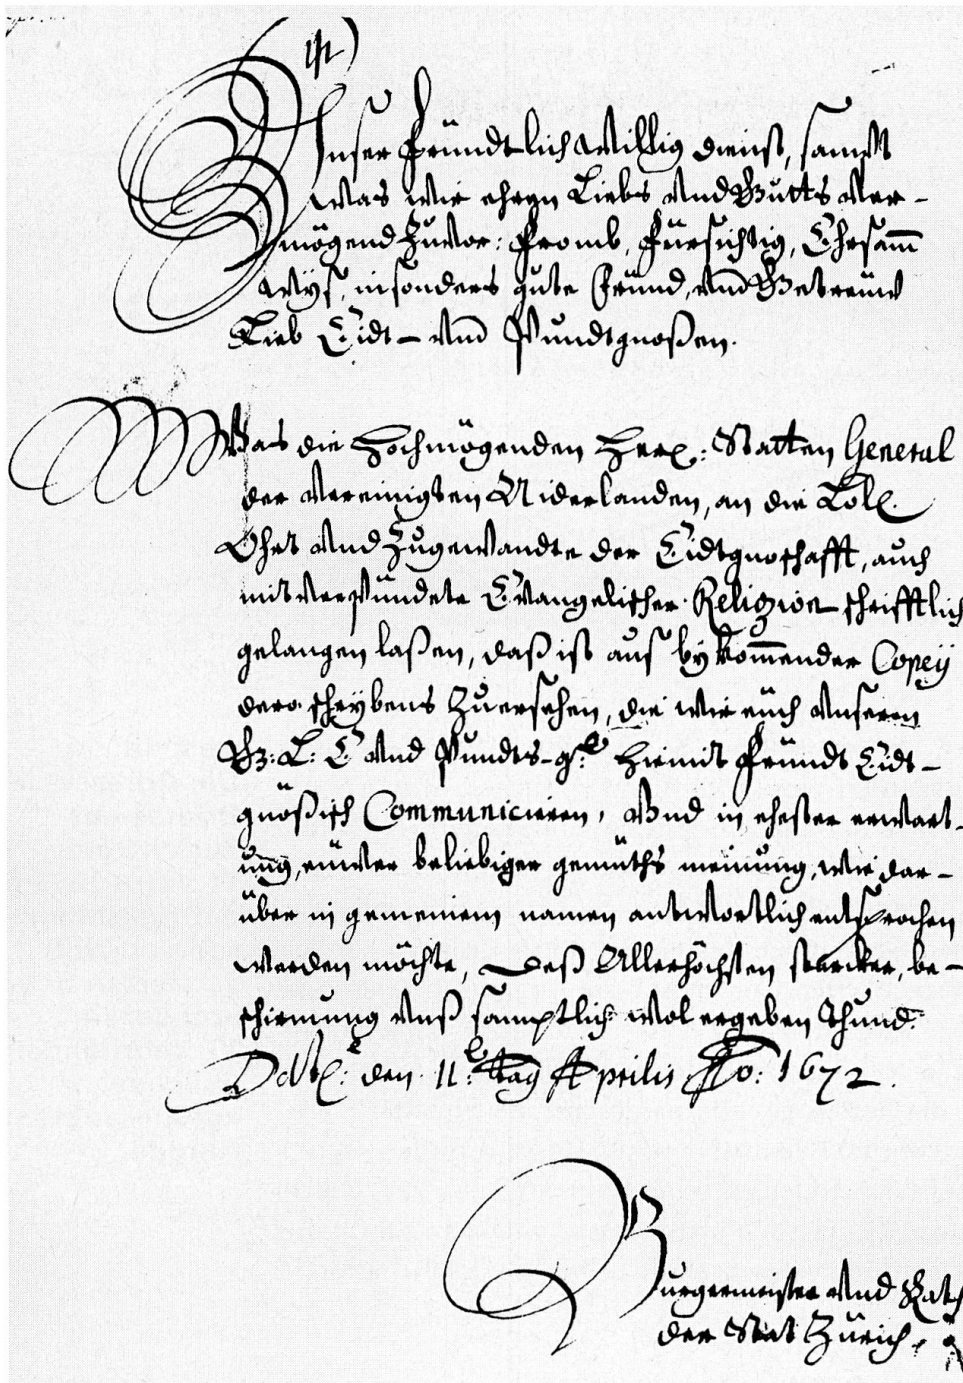 Unser fründtlich willig dienst, sampt
was wir ehren Liebs und Gutts ver-
mögend Zuvor: fromb, fürsichtig, Ehrsamm
wyß, insonders gute fründ, und Getreüw
Lieb Eidt- und Pundtgnoßen.
Was die Hochmögenden Herr: Statten General
der Vereinigten Niderlanden, an die Lobl.
Ohrt und Zugewandte der Eidtgnoschafft, auch
mit verpündete Evangelischer Religion schrifftlich
gelangen laßen, daß ist auß bykommender Copey
dero schrybens Zuersehen, die wir eüch unseren
G: L: E und Pundts-g: hiemit fründt Eidt-
gnößisch Communicieren, und in ehester erwart-
ung, eüwer beliebiger gemüths meinung, wie dar-
über in gemeinem namen antwortlich entsprochen
werden möchte, deß Allerhöchsten starcker, be-
schirmung unß samptlich wol ergeben thund.
Dat: den 11: tag Aprilis Ao: 1672.
Burgermeister und Rath
der Stat Zürich.